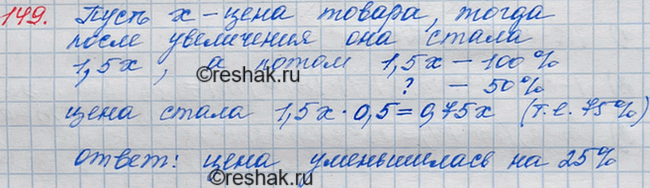 149. Пусть x – цена товара, тогда
после увеличения она стала
1,5x, а потом 1,5x – 100%
? – 50%
цена стала 1,5x · 0,5 = 0,75x (т.е. 75%)
ответ: цена уменьшилась на 25%
©reshak.ru
©reshak.ru
©reshak.ru